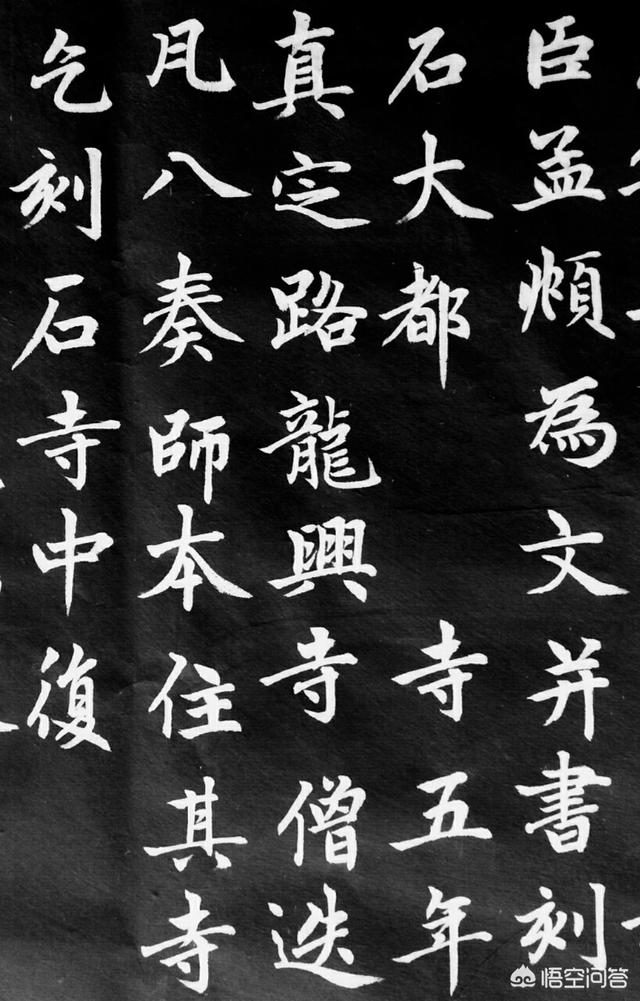 臣孟頫為文并書刻
石大都寺五年
真定路龍興寺僧迭
凡八奏師本住其寺
乞刻石寺中復
悟空问答